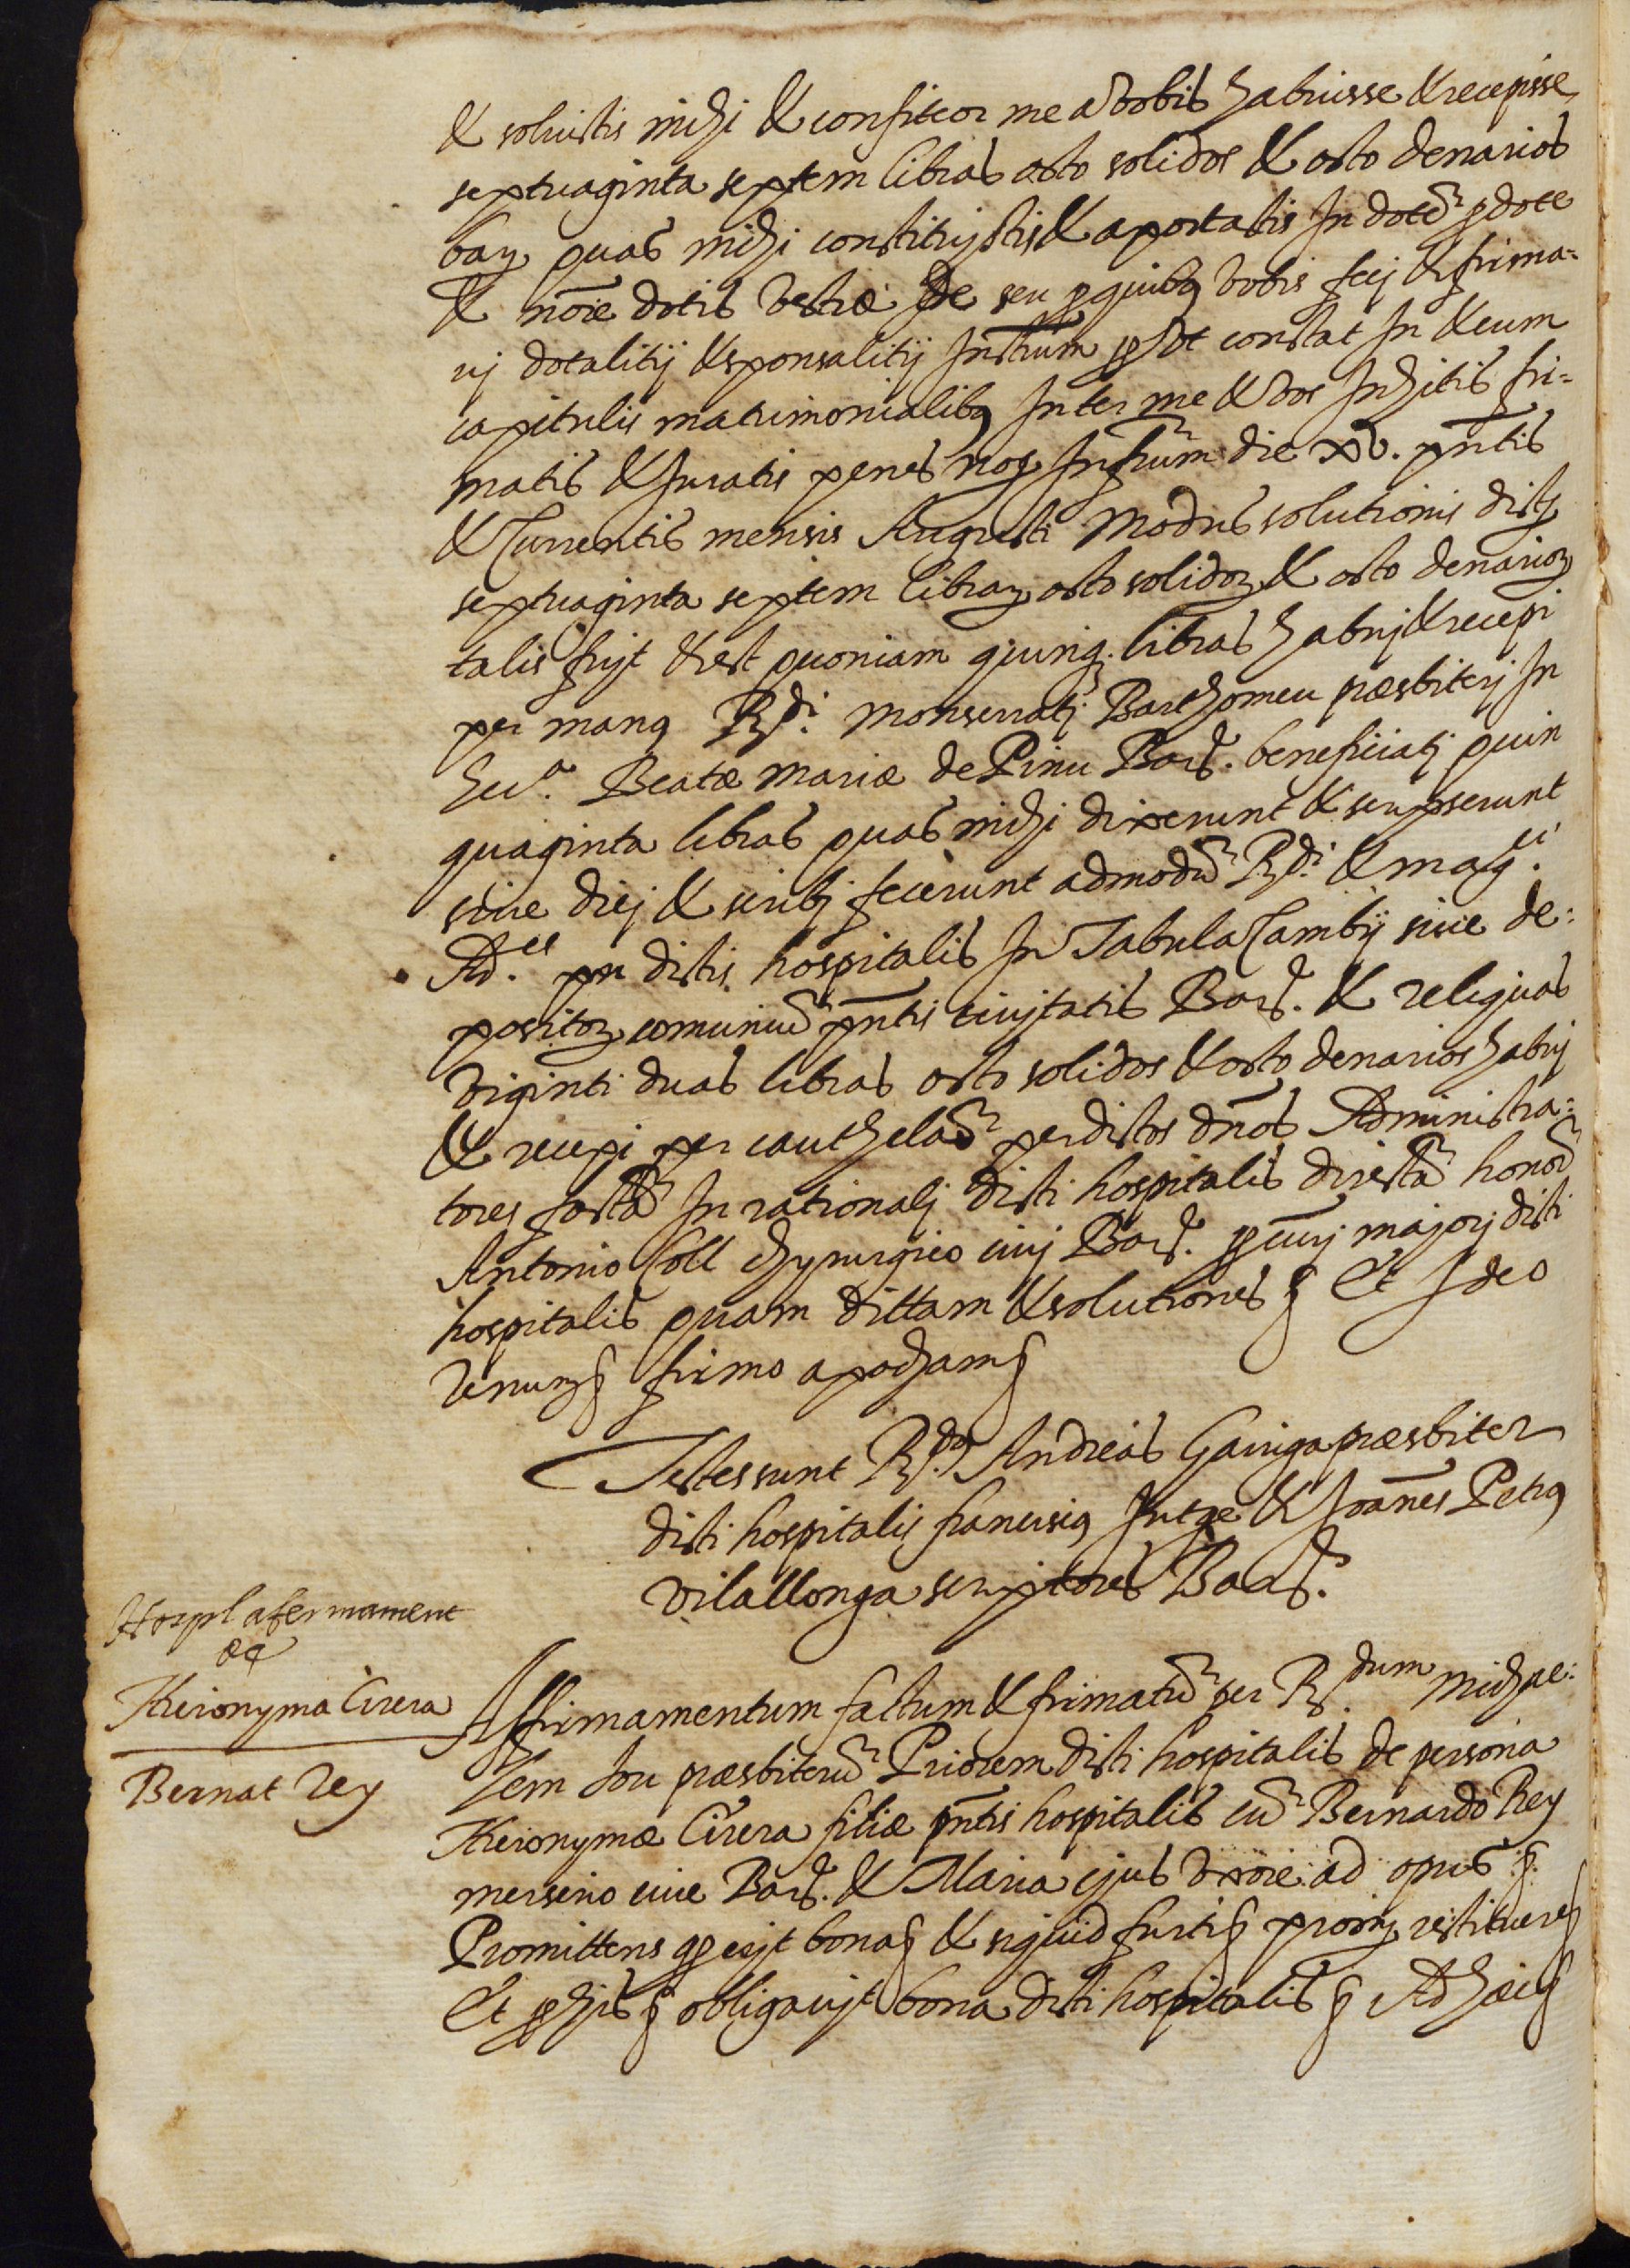 & solvistis mihi & confiteor me a vobis habuisse & recepisse
septuaginta septem libras octo solidos & octo denarios
bar͛ quas mihi constituistis & aportastis In dotē p dote
& noīe dotis vestræ De seu p quibꝰ vobis feci & firma=
vi dotalitij & sponsalitij Instrūm p ut constat In & cum
capitulis matrimonialibꝰ Inter me & vos Inhitis fir=
matis & Juratis penes noꝭ Infrūm die xv. pñtis
& Currentis mensis Augusti Modus solutionis dictꝝ
septuaginta septem libraꝝ octo solidoꝝ & octo denarioꝝ
talis fuit & est quoniam quinqꝫ libras habui & recepi
per manꝰ Rdi. Monserrati Barthomeu præsbiteri In
Ecc.a Beatæ Mariæ de Pinu Barꝭ. beneficiati quin
quaginta libras quas mihi dixerunt & scripserunt
sive dici & scribi fecerunt admodū Rdi. & mag.ci
Ad.es dictis hospitalis In Tabula Cambij sive de=
positoꝝ comuniū pñtis civitatis Barꝭ. & reliquas
viginti duas libras octo solidos & octo denarios habui
& recepi per cauthelā per dictos dños Administra=
tores factā In rationali dicti hospitalis directā honoꝝ
Antonio Coll chyrurgico civi Barꝭ. pcuri majori dicti
hospitalis quam dittam & solutiones ꝭ Et Ideo
renunꝭ firmo apochamꝭ
Testes sunt Rdꝰ Andreas Garriga præsbiter
dicti hospitalis franciscꝰ Jutge & Joañes Petrꝰ
Vilallonga scriptores Barꝭ.
Hospl afermament
de
Hieronyma Cirera
Bernat Rey
Affirmamentum factum & firmatū per Rdum. Michae=
lem Jou præsbiterū Priorem dicti hospitalis de persona
Hieronymæ Cirera filiæ pñtis hospitalis cū Bernardo Rey
merserio cive Barꝭ. & Maria ejus vxore ad opus ꝭ.
Promittens qp erit bonaꝭ & siquid furtiꝭ promꝭ restituereꝭ
Et p hijs ꝭ obligavit bona dicti hospitalis ꝭ Ad hæcꝭ